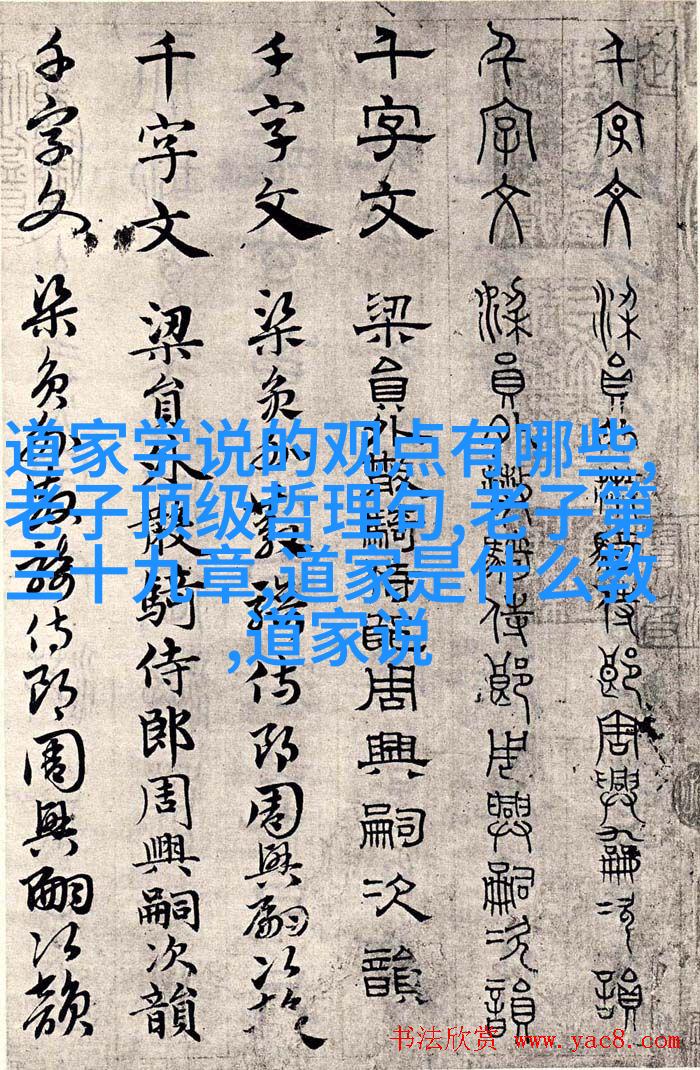 千字文 梁員外散騎侍郎周興嗣次韻
千字文 梁員外散騎侍郎周興嗣次韻
千字文 梁員外散騎侍郎周興嗣次韻
千字文 梁員外散騎侍郎周興嗣次韻
千字文 梁員外散騎侍郎周興嗣次韻
千字文 梁員外散騎侍郎周興嗣次韻
道家学说的观点有哪些,
老子顶级哲理句,老子第
三十九章,道家是什么教
,道家说
书法欣赏 www.yac8.com